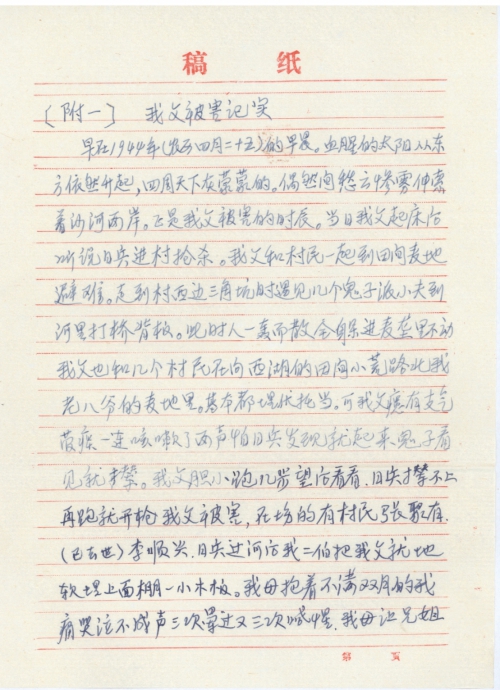 稿 纸
〔附一〕 我父被害记实
早在1944年(农历四月二十五)的早晨。血腥的太阳从东
方依然升起,四周天下灰蒙蒙的。偶然间愁云惨雾伸索
着沙河两岸。正是我父被害的时辰。当日我父起床后
听说日兵进村抢杀。我父和村民一起到田间麦地
避难。走到村西边三角坑时遇见几个鬼子派小夫到
河里打桥背板。此时人一轰而散全自躲进麦垄里不动
我父也和几个村民在向西湖的田间小荒路北我
老八爷的麦地里。基本都埋伏托当。可我父患有支气
管痰一连咳嗽了两声怕日兵发现就起来鬼子看
见就撵。我父胆小跑几步望后看看.日兵撵不上
再跑就开枪我父被害,在场的有村民张聚有.
(已去世)李顺兴.日兵过河后我二伯把我父就地
软埋上面棚一小木板。我母抱着不满双月的我
痛哭泣不成声三次晕过又三次喊醒.我母让兄姐
第 页